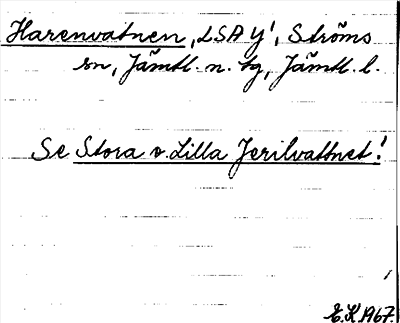 Harenvatnen, LSA y!, Ströms
sn, Jämtl. n. tg, Jämtl. l.
Se Stora o. Lilla Jerilvattnet!
E.K. 1967.